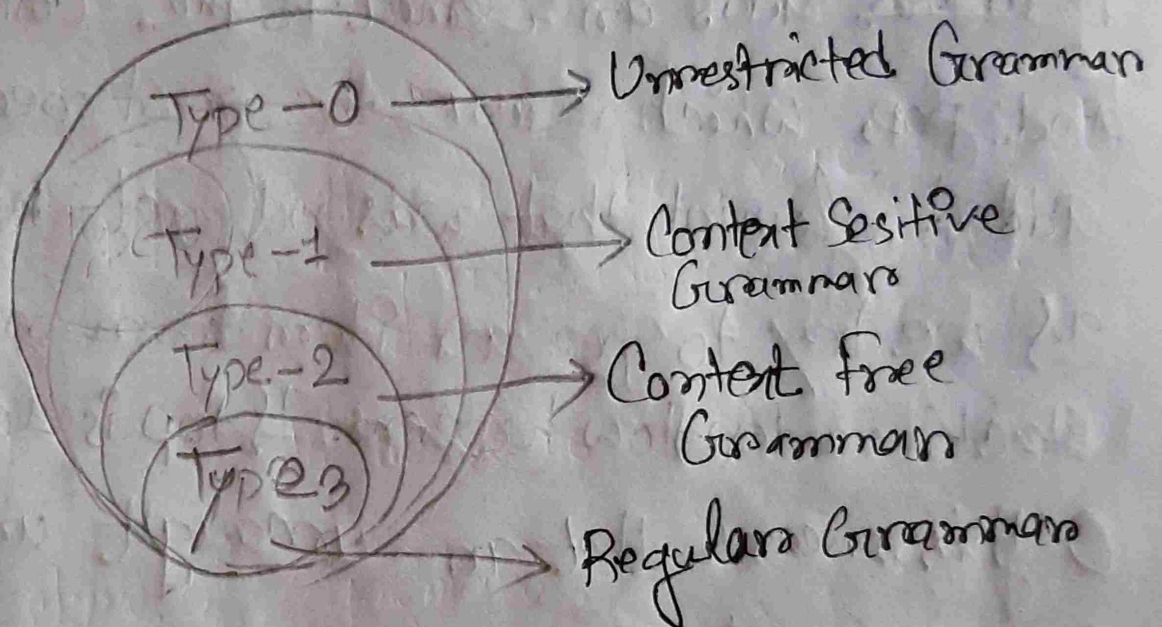 Type-0
Unrestricted Grammar
Type-1
Context Sesitive
Grammar
Type-2
Context free
Grammar
Type 3
Regular Grammar